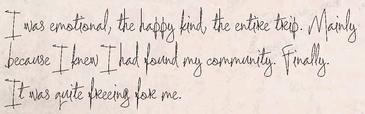 I was emotional, the happy kind, the entire trip. Mainly
because I knew I had found my community. Finally.
It was quite freeing for me.